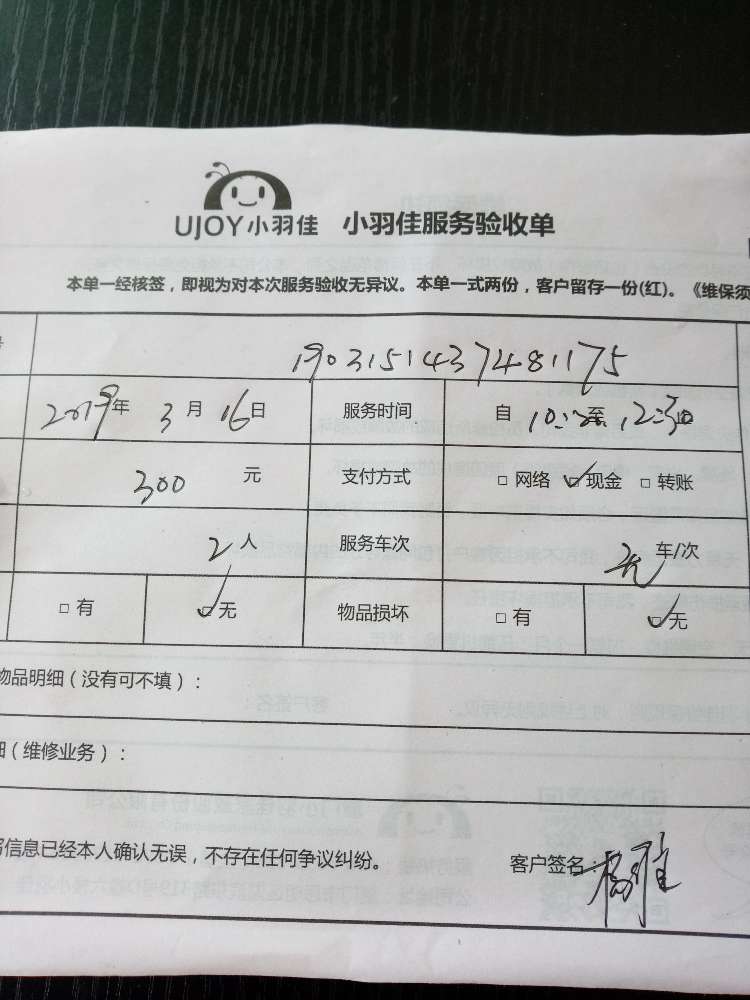 UJOY小羽佳 小羽佳服务验收单
本单一经核签，即视为对本次服务验收无异议。本单一式两份，客户留存一份(红)。《维保须
190315143748 1175
2019年 3月 16日 服务时间 自 至 12:30
300 元 支付方式 □ 网络 ☑现金 □ 转账
2 人 服务车次 无 车/次
□ 有 ☑无 物品损坏 □ 有 ☑无
物品明细（没有可不填）：
细（维修业务）：
信息已经本人确认无误，不存在任何争议纠纷。 客户签名：